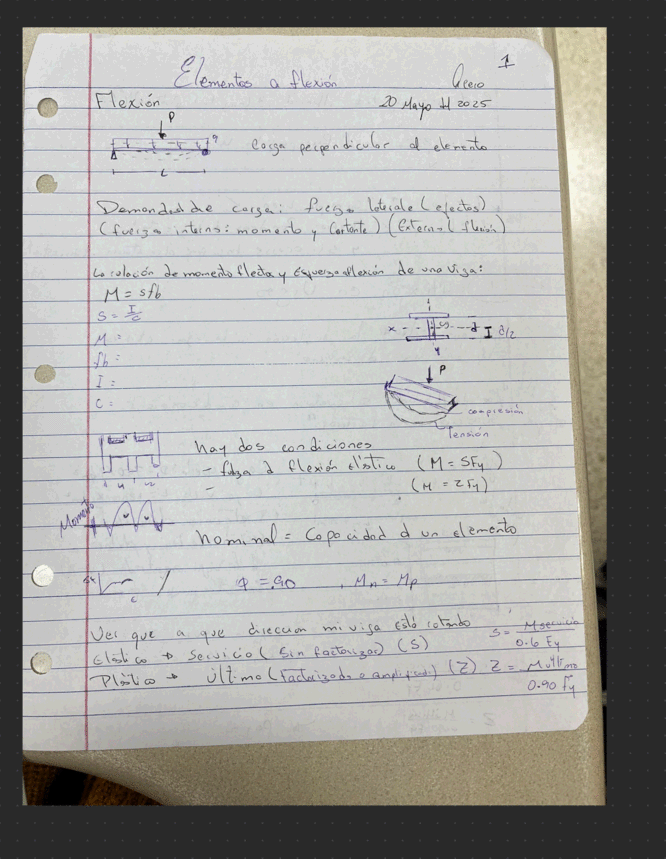 1
Elementos a flexión
Acero
Flexión
20 Mayo del 2025
P
q
L
Carga perpendicular al elemento
Demandad de carga: fuerza laterale (efectos)
(fuerza interns: momento y Cortante) (Extern (flexión)
La relación de momento flecta y Esfuerzo flexión de una viga:
M = sfb
S = I/c
M =
fb =
I =
C =
x
d I d/2
y
P
compresión
Tensión
hay dos condiciones
- flexión elástico (M = SFy)
- (M = ZFy)
Momento
nominal = Capacidad d un elemento
φ = .90 , Mn = Mp
Ver que a que direccion mi viga está rotando
Elástico → Servicio (Sin factorizar) (S)
S = Mservicio / 0.6 Fy
Plástico → último (Factorizada o amplificado) (Z)
Z = Multimo / 0.90 Fy